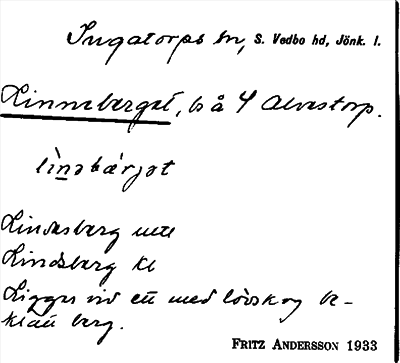 Ingatorps sn, S. Vedbo hd, Jönk. l.
Linneberget, ls å 4 Alvestorp.
lìnəbærjət
Lindesberg uttl
Lindsberg kl
Ligger vid ett med lövskog be-
klätt berg.
FRITZ ANDERSSON 1933